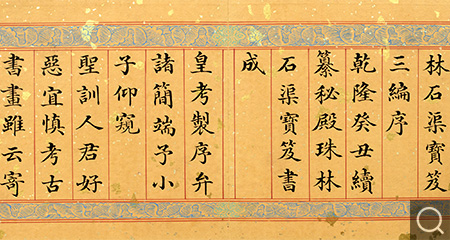 林石渠寶笈
三編序
乾隆癸丑續
纂秘殿珠林
石渠寶笈書
成
皇考製序弁
諸簡端予小
子仰窺
聖訓人君好
惡宜慎考古
書畫雖云寄